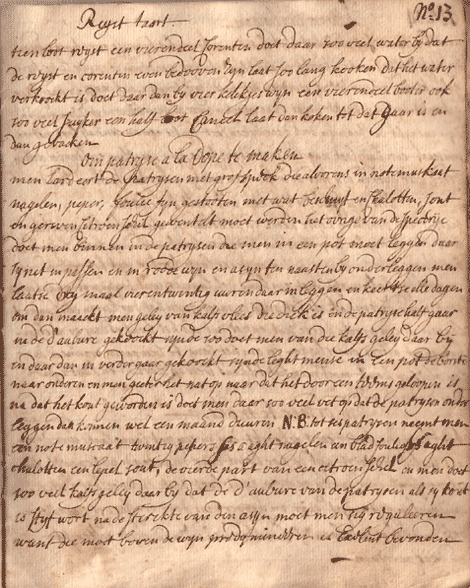 No: 13
Ryst taart.
tien loot ryst een vierendeel Corenten doet daar soo veel water by dat
de ryst en corenten even bedooven syn laat soo lang kooken dat het water
verkookt is doet daar dan by vier kelkjes wyn een vierendeel booter ook
soo veel suyker een half loot Caneel laat dan koken tot dat gaar is en
dan gebacken
Om patryse a la Dope te maken
men lardeert de Patrysen met grof speck die alvorens in notemuskaat
nagelen, peper, foulie fyn gestooten met wat en sialotten, sout
en gereven sitroen schel gewentelt moet werden het overige van de
doet men binnen in de patrysen die men in een pot moet leggen daar
sy net in passen en in roode wyn en asyn ten naasten by onder leggen men
laatse maal vierentwintig uuren daar in leggen en keert se alle dagen
om dan maackt men geley van kalfsvlees die dick is en de patrys half gaar
in de d'aubure gekookt synde soo doet men van die kalfs geley daar by
en daar dan in verder gaar gekookt synde leght mense in een pot de borste
naar onderen en men giet het nat op naar dat het door een teems geloopen is
na dat het kout geworden is doet men daar soo veel vet op dat de patrysen onder
leggen dat konnen wel een maand dueren N.B. tot ses patrysen neemt men
een note muscaat twintig pepers aght nagelen een blad foulie aght
chalotten een lepel sout, de vierde part van een citroen schel en men doet
soo veel kalfs geley daar by dat de d'aubure van de patrysen als sy kout
is styf wort na de sterckte van den asyn moet men sig reguleeren
want die moet boven de wyn predomineeren is Exelent bevonden